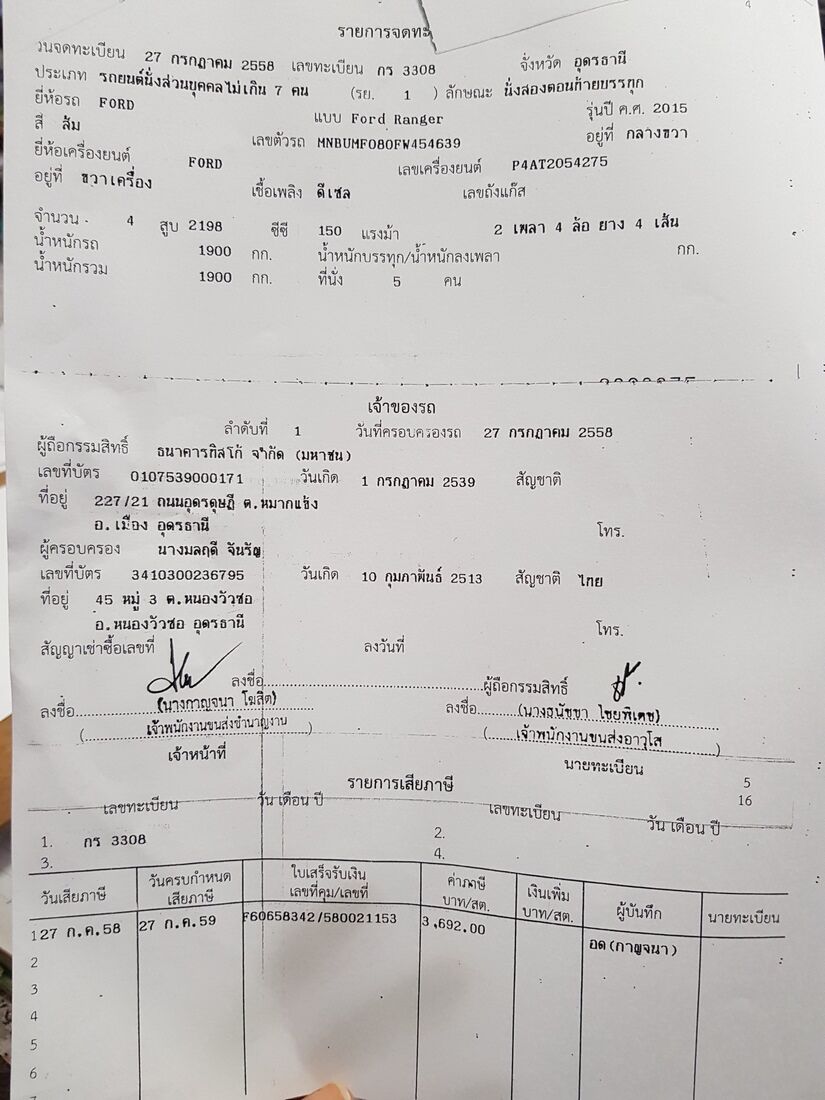 รายการจดทะ
วันจดทะเบียน 27 กรกฎาคม 2558 เลขทะเบียน กร 3308 จังหวัด อุดรธานี
ประเภท รถยนต์นั่งส่วนบุคคลไม่เกิน 7 คน (รย. 1 ) ลักษณะ นั่งสองตอนท้ายบรรทุก
ยี่ห้อรถ FORD แบบ Ford Ranger รุ่นปี ค.ศ. 2015
สี ส้ม เลขตัวรถ MNBUMFO80FW454639 อยู่ที่ กลางขวา
ยี่ห้อเครื่องยนต์ FORD เลขเครื่องยนต์ P4AT2054275
อยู่ที่ ขวาเครื่อง เชื้อเพลิง ดีเซล เลขถังแก๊ส
จำนวน 4 สูบ 2198 ซีซี 150 แรงม้า 2 เพลา 4 ล้อ ยาง 4 เส้น
น้ำหนักรถ 1900 กก. น้ำหนักบรรทุก/น้ำหนักลงเพลา กก.
น้ำหนักรวม 1900 กก. ที่นั่ง 5 คน
เจ้าของรถ
ลำดับที่ 1 วันที่ครอบครองรถ 27 กรกฎาคม 2558
ผู้ถือกรรมสิทธิ์ ธนาคารทิสโก้ จำกัด (มหาชน)
เลขที่บัตร 0107539000171 วันเกิด 1 กรกฎาคม 2539 สัญชาติ
ที่อยู่ 227/21 ถนนอุดรดุษฎี ต.หมากแข้ง
อ.เมือง อุดรธานี โทร.
ผู้ครอบครอง นางมลฤดี จันรัญ
เลขที่บัตร 3410300236795 วันเกิด 10 กุมภาพันธ์ 2513 สัญชาติ ไทย
ที่อยู่ 45 หมู่ 3 ต.หนองวัวซอ
อ.หนองวัวซอ อุดรธานี โทร.
สัญญาเช่าซื้อเลขที่ ลงวันที่
ลงชื่อ ผู้ถือกรรมสิทธิ์
ลงชื่อ (นางกาญจนา โฆสิต) ลงชื่อ (นางธนัชชา ไชยพิเดช)
( เจ้าพนักงานขนส่งชำนาญงาน ) ( เจ้าพนักงานขนส่งอาวุโส )
เจ้าหน้าที่ นายทะเบียน
รายการเสียภาษี 5
16
เลขทะเบียน วัน เดือน ปี เลขทะเบียน วัน เดือน ปี
1. กร 3308 2.
3. 4.
วันเสียภาษี วันครบกำหนดเสียภาษี ใบเสร็จรับเงิน เลขที่คุม/เลขที่ ค่าภาษี บาท/สต. เงินเพิ่ม บาท/สต. ผู้บันทึก นายทะเบียน
1 27 ก.ค.58 27 ก.ค.59 F60658342/580021153 3,692.00
2 อด(กาญจนา)
3
4
5
6